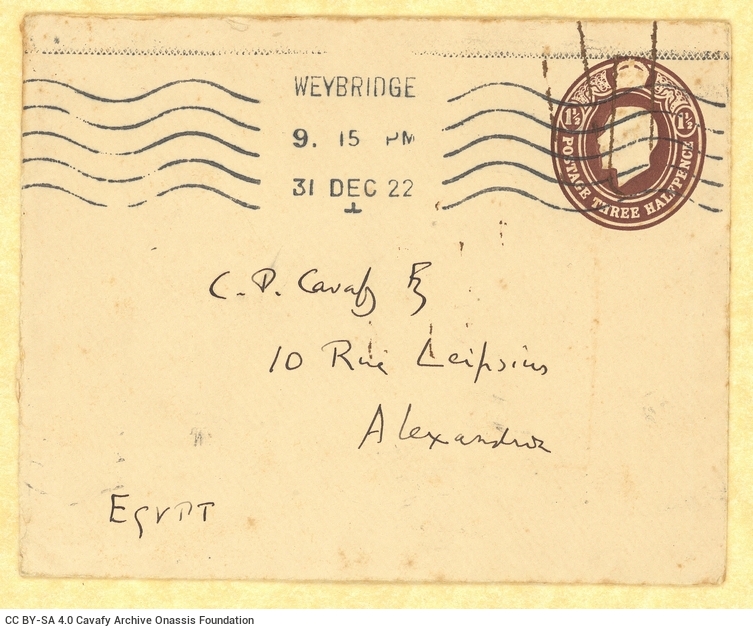 WEYBRIDGE
9. 15 PM
31 DEC 22
1½ 1½
POSTAGE THREE HALFPENCE
C. P. Cavafy Esq
10 Rue Leipsius
Alexandria
EGYPT
CC BY-SA 4.0 Cavafy Archive Onassis Foundation